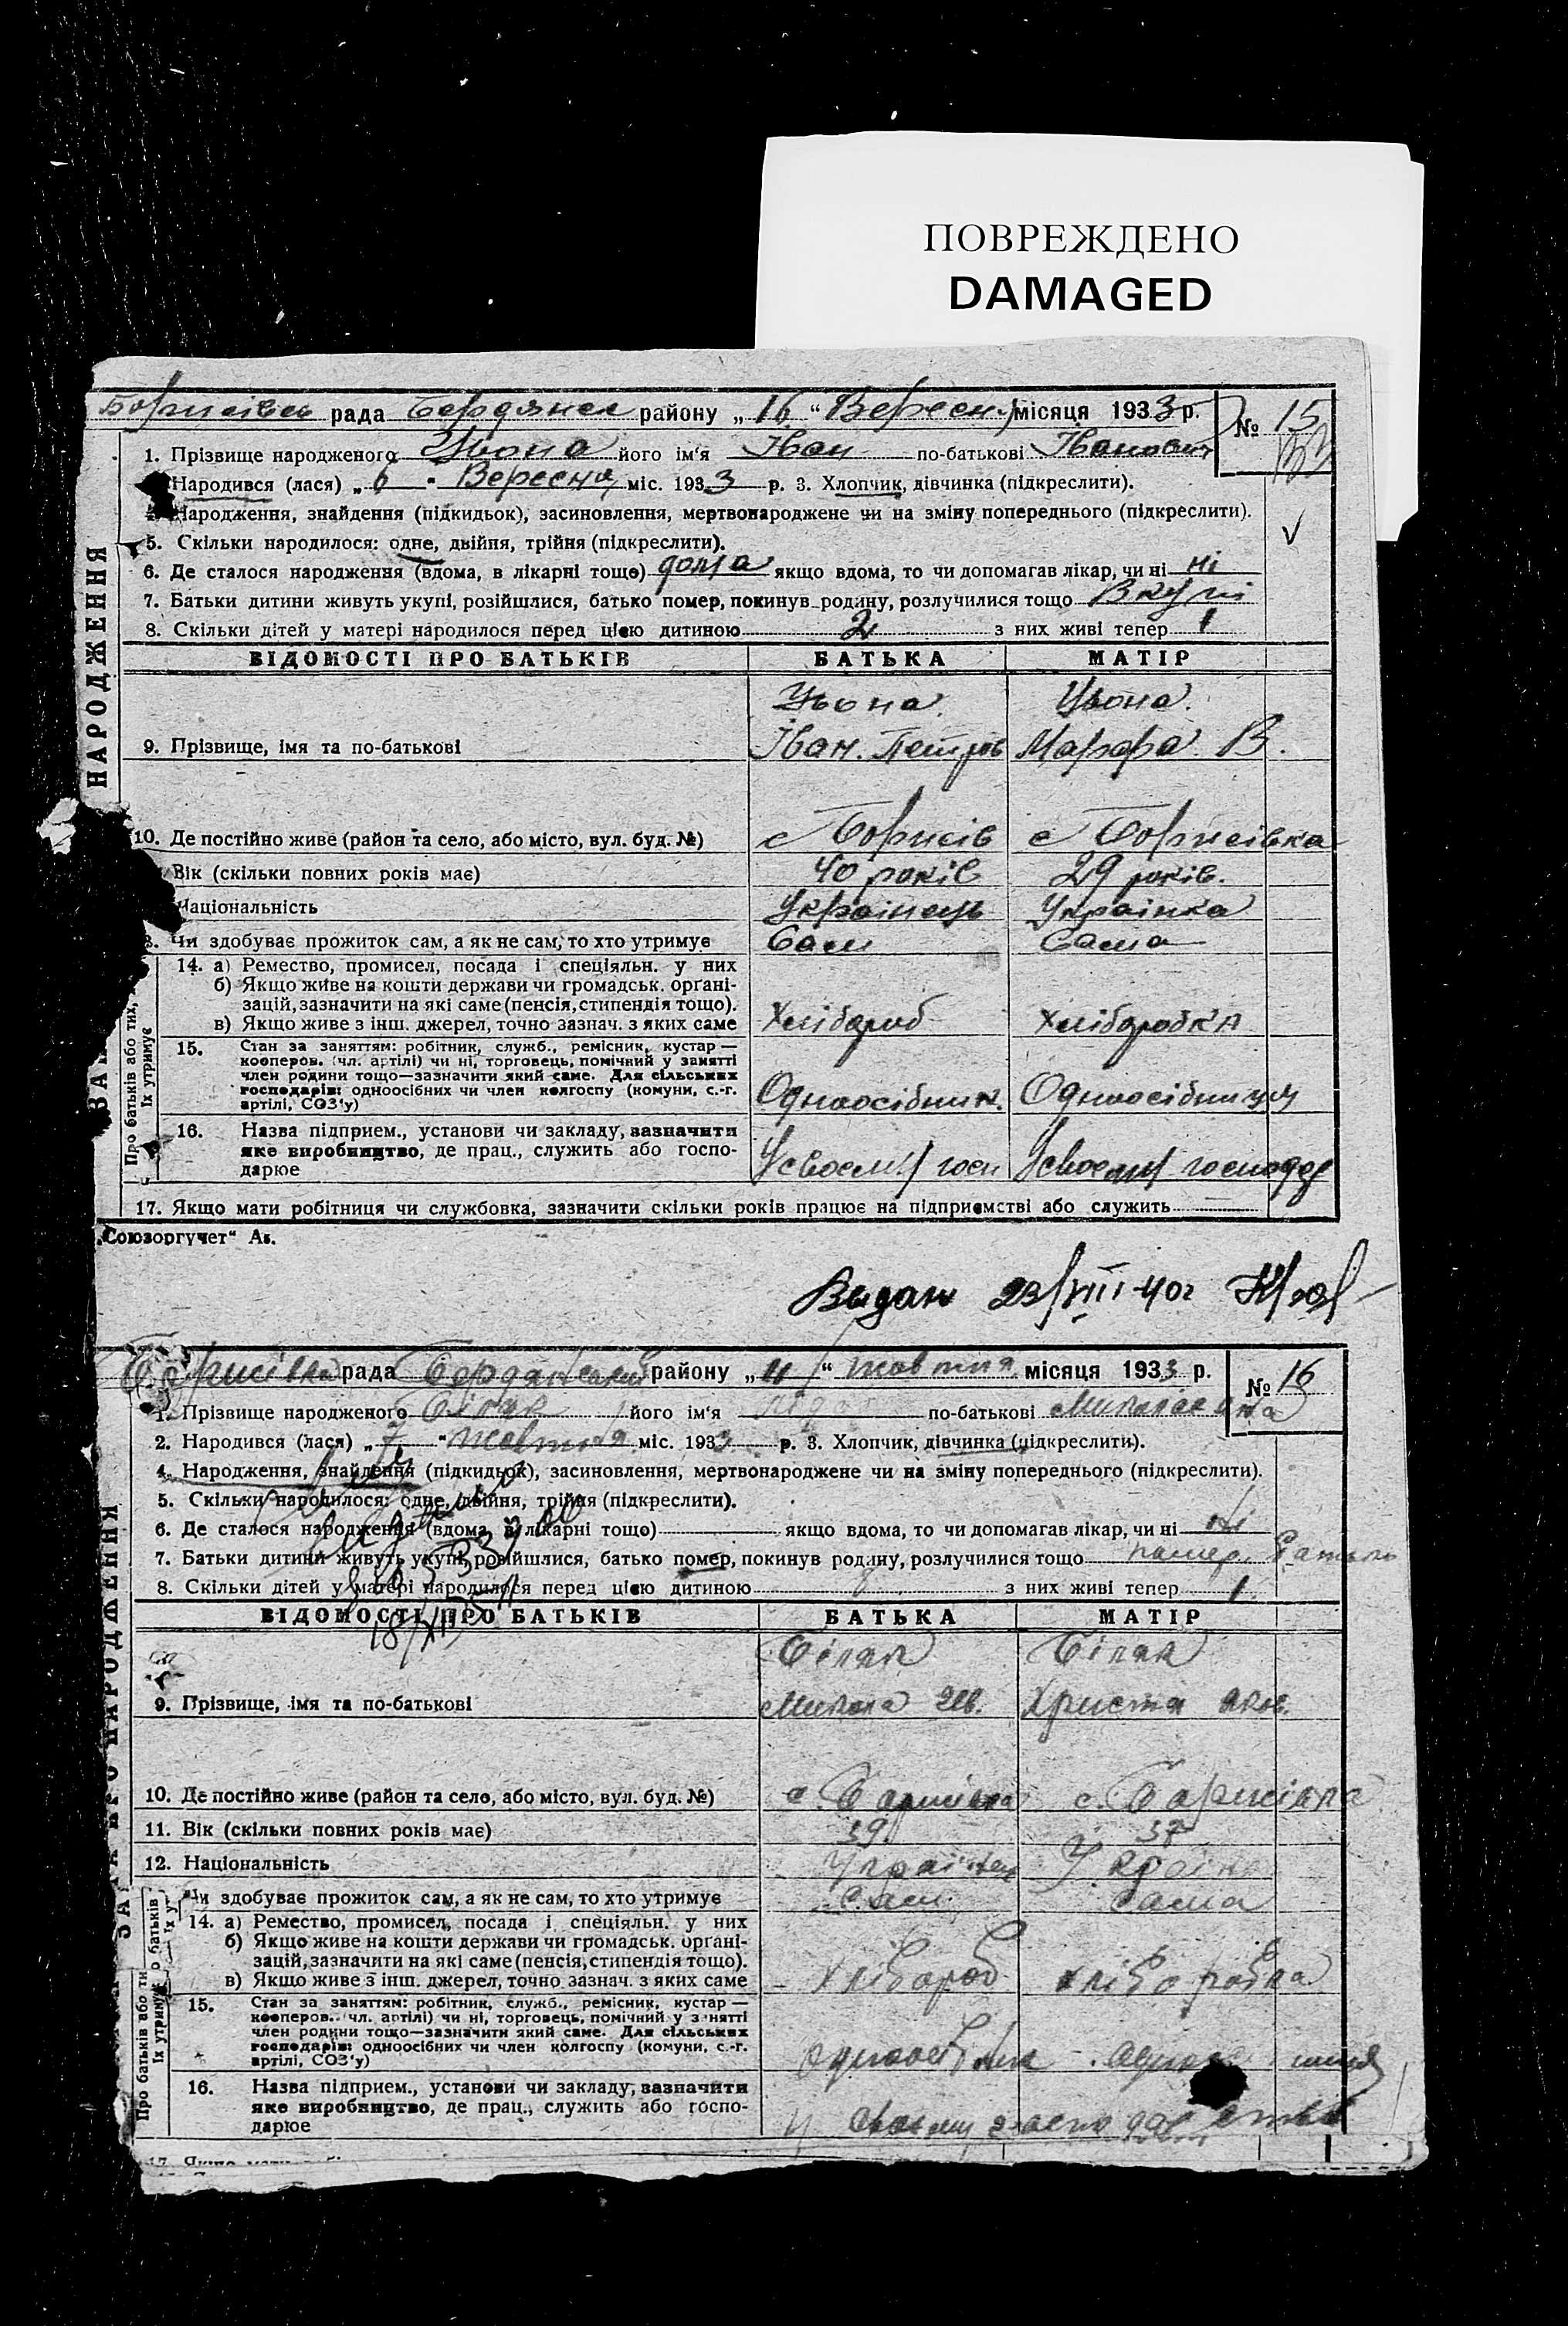 ПОВРЕЖДЕНО
DAMAGED
Борисівськ рада Бердянськ району „ 16 “ Вересня місяця 1933 р. № 15
1. Прізвище народженого Цьона його ім'я Іван по-батькові Іванович
Народився (лася) „ 6 “ Вересня міс. 1933 р. 3. Хлопчик, дівчинка (підкреслити).
Народження, знайдення (підкидьок), засиновлення, мертвонароджене чи на зміну попереднього (підкреслити).
5. Скільки народилося: одне, двійня, трійня (підкреслити).
6. Де сталося народження (вдома, в лікарні тощо) дома якщо вдома, то чи допомагав лікар, чи ні ні
7. Батьки дитини живуть укупі, розійшлися, батько помер, покинув родину, розлучилися тощо Вкупі
8. Скільки дітей у матері народилося перед цією дитиною 2 з них живі тепер 1
ВІДОМОСТІ ПРО БАТЬКІВ БАТЬКА МАТІР
Цьона. Цьона.
9. Прізвище, імя та по-батькові Іван. Петров Марфа В.
10. Де постійно живе (район та село, або місто, вул. буд. №) с Борисів с Борисівка
Вік (скільки повних років має) 40 років 29 років.
Національність Українець Українка
Чи здобуває прожиток сам, а як не сам, то хто утримує Сам Сама
14. а) Ремество, промисел, посада і спеціяльн. у них
б) Якщо живе на кошти держави чи громадськ. органі-
зацій, зазначити на які саме (пенсія, стипендія тощо).
в) Якщо живе з інш. джерел, точно зазнач. з яких саме Хлібороб Хліборобка
15. Стан за заняттям: робітник, служб., ремісник, кустар —
кооперов. (чл. артілі) чи ні, торговець, помічний у занятті
член родини тощо—зазначити який саме. Для сільських
господарів: одноосібних чи член колгоспу (комуни, с.-г.
артілі, СОЗ'у) Одноосібник. Одноосібниця
16. Назва підприєм., установи чи закладу, зазначити
яке виробництво, де прац., служить або госпо-
дарює У своєму госп У своєму господар
17. Якщо мати робітниця чи службовка, зазначити скільки років працює на підприємстві або служить
НАРОДЖЕННЯ
Про батьків або тих,
їх утримує
„Союзоргучет“
Выдан 23/VIII-40г
Борисівка рада Бердянський району „ 11 “ жовтня місяця 1933 р. № 16
1. Прізвище народженого Білак його ім'я по-батькові Миколаєвна
2. Народився (лася) „ 7 “ жовтня міс. 1933 р. 3. Хлопчик, дівчинка (підкреслити).
4. Народження, знайдення (підкидьок), засиновлення, мертвонароджене чи на зміну попереднього (підкреслити).
5. Скільки народилося: одне, двійня, трійня (підкреслити).
6. Де сталося народження (вдома, в лікарні тощо) якщо вдома, то чи допомагав лікар, чи ні ні
7. Батьки дитини живуть укупі, розійшлися, батько помер, покинув родину, розлучилися тощо помер. батько
8. Скільки дітей у матері народилося перед цією дитиною з них живі тепер 1
ВІДОМОСТІ ПРО БАТЬКІВ БАТЬКА МАТІР
Білак Білак
9. Прізвище, імя та по-батькові Микола Ів. Христя Яков.
10. Де постійно живе (район та село, або місто, вул. буд. №) с. Борисівка с. Борисівка
11. Вік (скільки повних років має) 39 37
12. Національність Українец Україн
Чи здобуває прожиток сам, а як не сам, то хто утримує Сам. Сама
14. а) Ремество, промисел, посада і спеціяльн. у них
б) Якщо живе на кошти держави чи громадськ. органі-
зацій, зазначити на які саме (пенсія, стипендія тощо).
в) Якщо живе з інш. джерел, точно зазнач. з яких саме Хлібороб хліборобка
15. Стан за заняттям: робітник, служб., ремісник, кустар —
кооперов. чл. артілі) чи ні, торговець, помічний у занятті
член родини тощо—зазначити який саме. Для сільських
господарів: одноосібних чи член колгоспу (комуни, с.-г.
артілі, СОЗ'у) одноосібник
16. Назва підприєм., установи чи закладу, зазначити
яке виробництво, де прац., служить або госпо-
дарює У своєму господарстві
Про батьків або ти
їх утримує